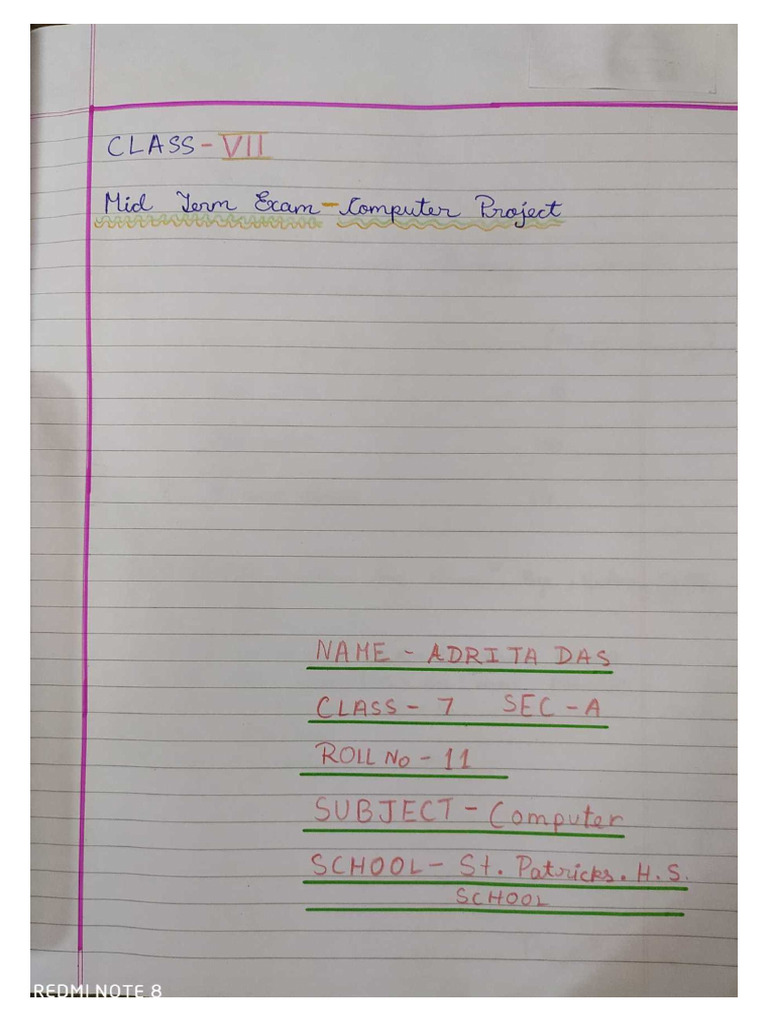 CLASS - VII
Mid Term Exam - Computer Project
NAME - ADRITA DAS
CLASS - 7 SEC - A
ROLL No - 11
SUBJECT - Computer
SCHOOL - St. Patricks. H. S.
SCHOOL
REDMI NOTE 8